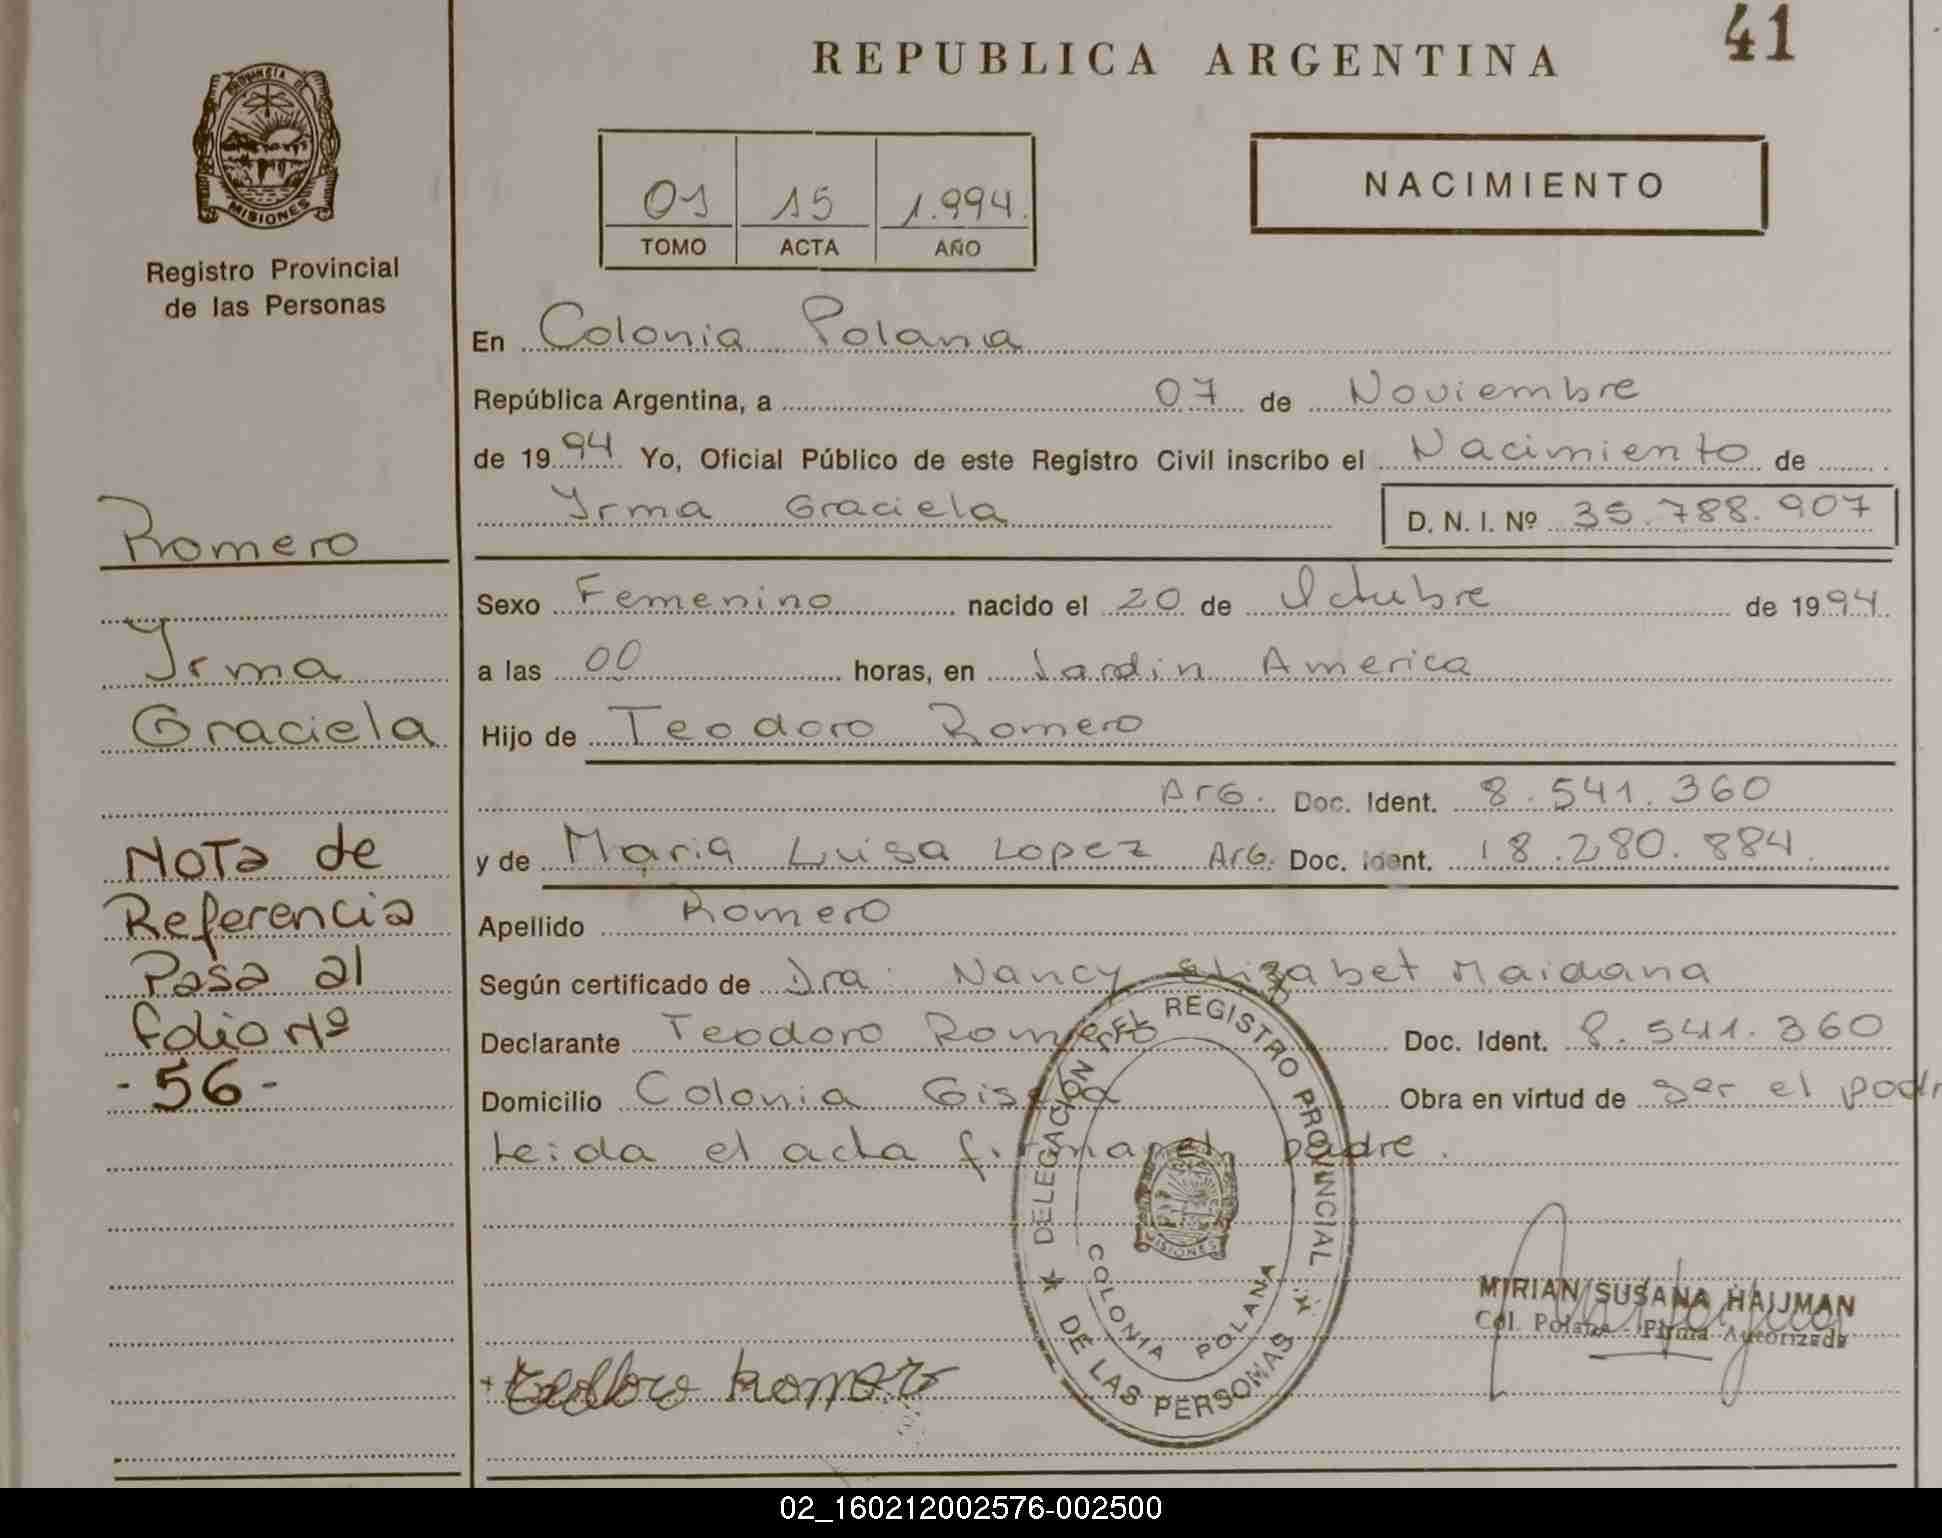 REPUBLICA ARGENTINA
41
PROVINCIA DE
MISIONES
Registro Provincial
de las Personas
01 15 1.994.
TOMO ACTA AÑO
NACIMIENTO
En Colonia Polana
República Argentina, a 07 de Noviembre
de 1994 Yo, Oficial Público de este Registro Civil inscribo el Nacimiento de
Yrma Graciela D. N. I. Nº 35.788.907
Sexo Femenino nacido el 20 de Octubre de 1994.
a las 00 horas, en Jardin America
Hijo de Teodoro Romero
Arg. Doc. Ident. 8.541.360
y de Maria Luisa Lopez Arg. Doc. Ident. 18.280.884.
Apellido Romero
Según certificado de Dra. Nancy Elizabet Maidana
Declarante Teodoro Romero Doc. Ident. 8.541.360
Domicilio Colonia Gisela Obra en virtud de ser el padr
Leida el acta firma el padre.
Romero
Yrma
Graciela
Nota de
Referencia
Pasa al
folio Nº
-56-
DELEGACIÓN DEL REGISTRO PROVINCIAL
DE LAS PERSONAS
COLONIA POLANA
MISIONES
MIRIAN SUSANA HAIJMAN
Col. Polana - Firma Autorizada
+ teodoro Romero
02_160212002576-002500